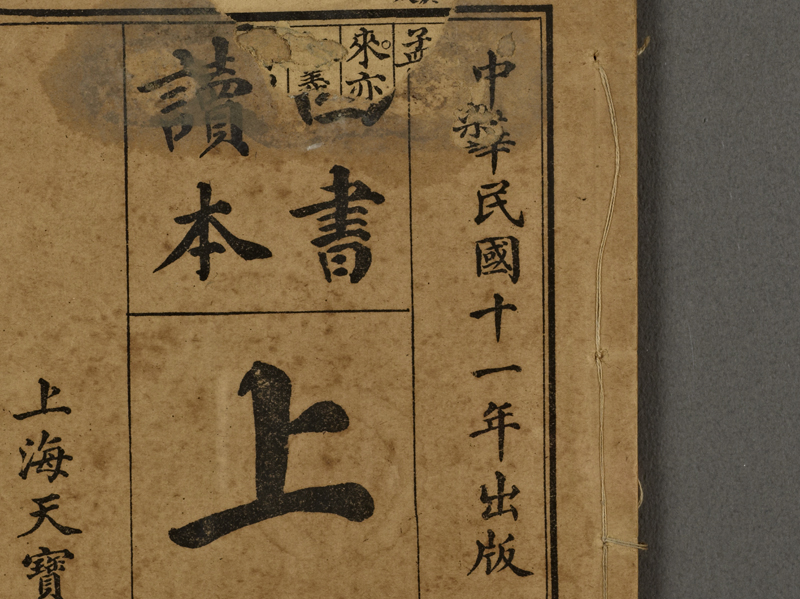 中華民國十一年出版
孟
來亦
四書
讀本
上
上海天寶